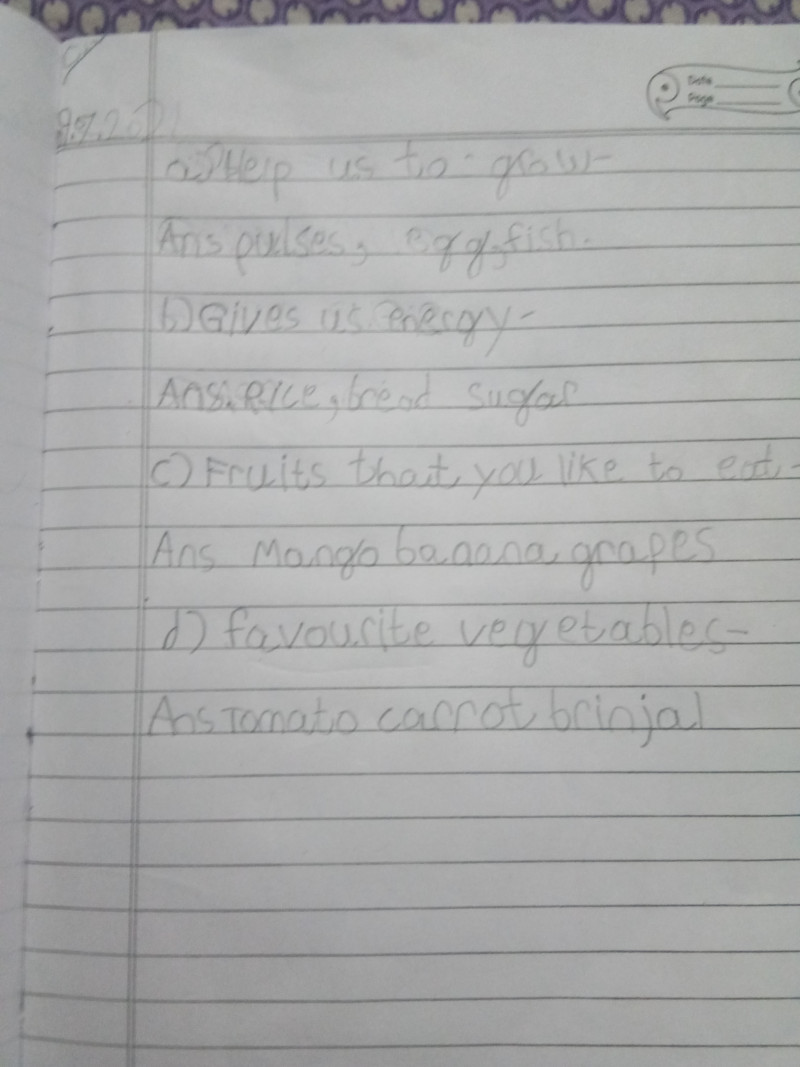 Date
Page
9.7.2021
a) Help us to grow-
Ans pulses, egg, fish.
b) Gives us energy-
Ans. Rice, bread sugar
c) Fruits that you like to eat-
Ans Mango banana grapes
d) favourite vegetables-
Ans Tomato carrot brinjal